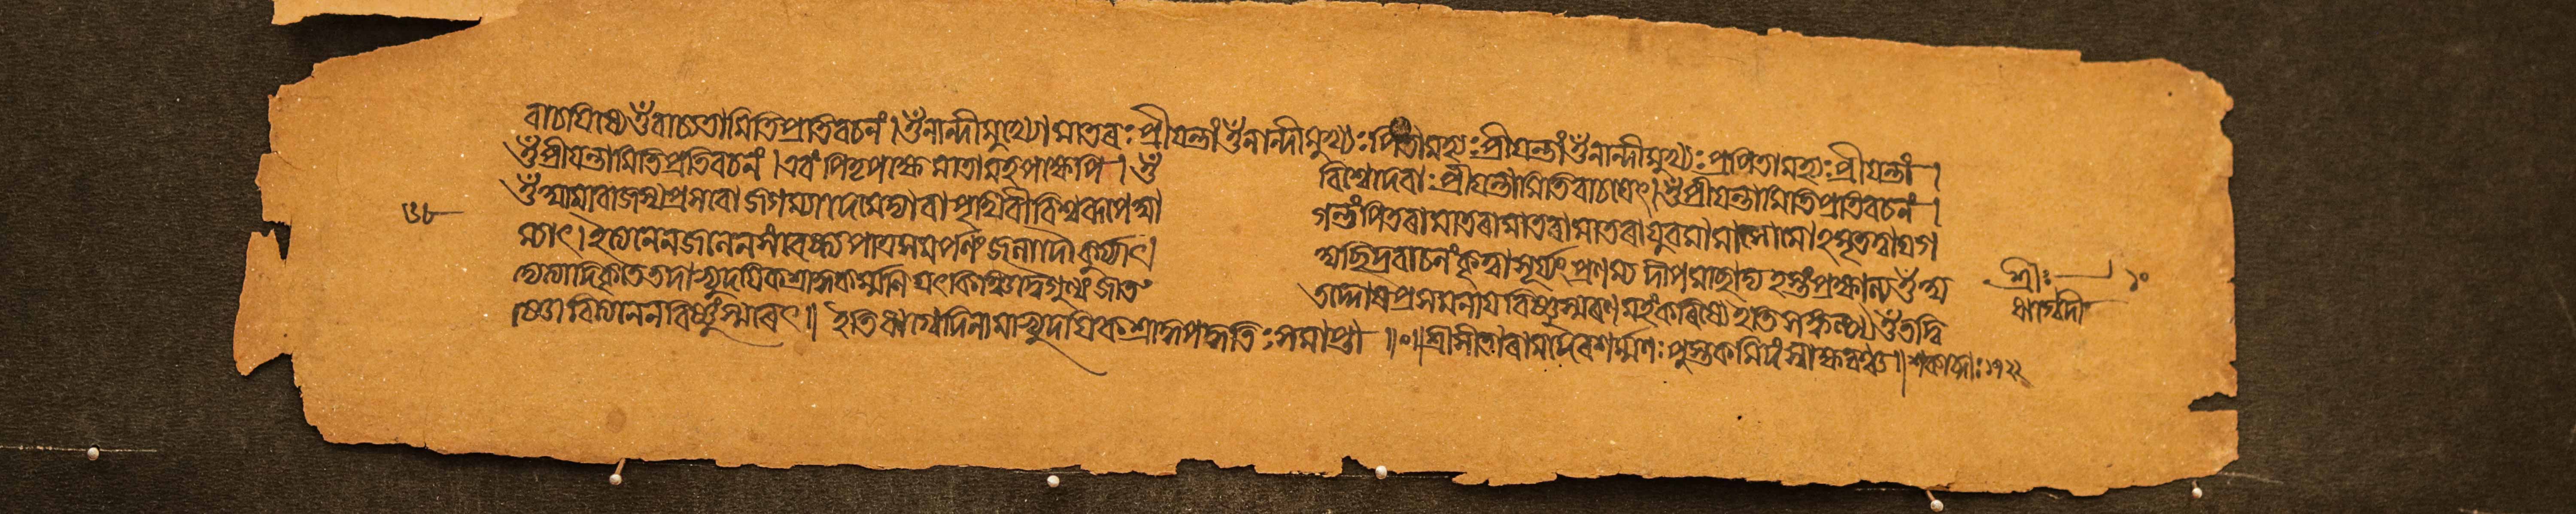 বাচয়িষ্যে ওঁ বাচ্যতামিতি প্রতিবচনং । ওঁ নান্দীমুখ্যো মাতরঃ প্রীয়ন্তাং ওঁ নান্দীমুখ্যঃ পিতামহ্যঃ প্রীয়ন্তাং ওঁ নান্দীমুখ্যঃ প্রপিতামহ্যঃ প্রীয়ন্তাং ।
ওঁ প্রীয়ন্তামিতি প্রতিবচনং । এবং পিতৃপক্ষে মাতামহপক্ষেপি । ওঁ বিশ্বেদেবাঃ প্রীয়ন্তামিতি বাচয়েৎ । ওঁ প্রীয়ন্তামিতি প্রতিবচনং ।
৩৮ ওঁ আমাবাজস্য প্রসবো জগম্যাদেমেদ্যাবা পৃথিবী বিশ্বরূপে আ গন্তং পিতরা মাতরা মাতরা মাতরা যুবমা মা সোমো ঽমৃতত্বায় গ
ম্যাৎ । ইত্যনেন জনেন পাত্রসমর্পণং জলাদৌ কুর্য্যাৎ । অচ্ছিদ্রবাচনং কৃত্বা সূর্য্যং প্রণম্য দীপমাচ্ছাদ্য হস্তং প্রক্ষাল্য ওঁ অ শ্রীঃ ১০
দ্যেত্যাদি কৃতৈতদাভ্যুদয়িকশ্রাদ্ধকর্ম্মণি যৎকিঞ্চিদ্বৈগুণ্যং জাতং তদ্দোষপ্রসমনায় বিষ্ণুস্মরণমহং করিষ্যে ইতি সঙ্কল্প্য ওঁ তদ্বি ঋগ্বেদী
ষ্ণো রিত্যনেন বিষ্ণুং স্মরেৎ ॥ ইতি ঋগ্বেদিনামাভ্যুদয়িকশ্রাদ্ধপদ্ধতিঃ সমাপ্তা ॥০॥ শ্রীসীতারামদেবশর্ম্মণঃ পুস্তকমিদং স্বাক্ষরঞ্চ ॥ শকাব্দাঃ ১৭২২